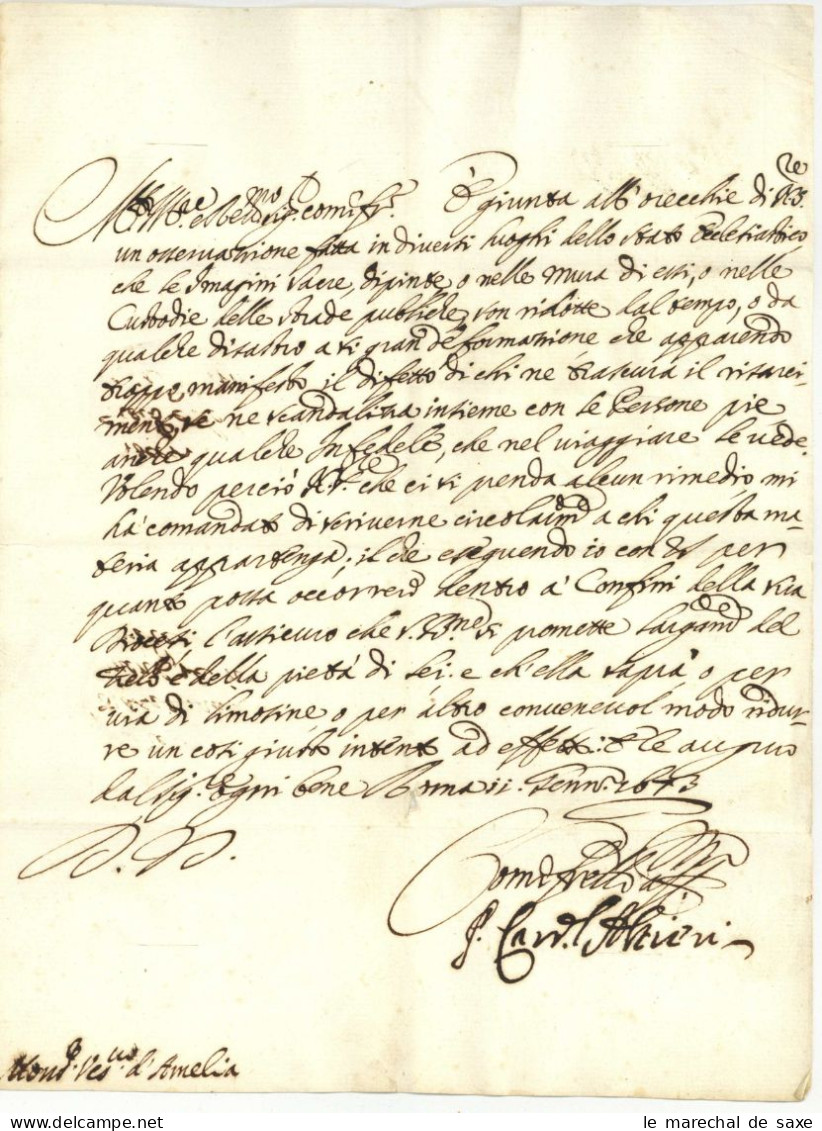 Molto Ill.re e R.mo Sig. come fr. È giunta all'orecchie di N. S.re
un osservazione fatta in diversi luoghi dello Stato Ecclesiastico
che le Imagini Sacre, dipinte o nelle mura di essi, o nelle
Custodie delle strade publiche, son ridotte dal tempo, o da
qualche disastro a sì gran deformazione che apparendo
troppo manifesto il difetto di chi ne trascura il risarci-
mento, se ne scandaliza insieme con le Persone pie
anche qualche Infedele, che nel viaggiare le vede.
Volendo perciò N. S.re che ci si prenda alcun rimedio mi
hà comandato di scriverne circolarm.te a chi questa ma-
teria appartenga; il che eseguendo io con V.S. per
quanto possa occorrere dentro a' Confini della sua
Diocesi l'assicuro che S. B.ne si promette largam.te del
zelo e della pietà di lei. e ch'ella saprà o per
via di limosine, o per altro convenevol modo ridur-
re un così giusto intento ad effetto: E le auguro
dal Sig.re ogni bene Roma 11. Genn.o 1673
D. V. S.
Come fratello aff.
P. Card.l Altieri
Mons.r Ves.vo d'Amelia
le marechal de saxe